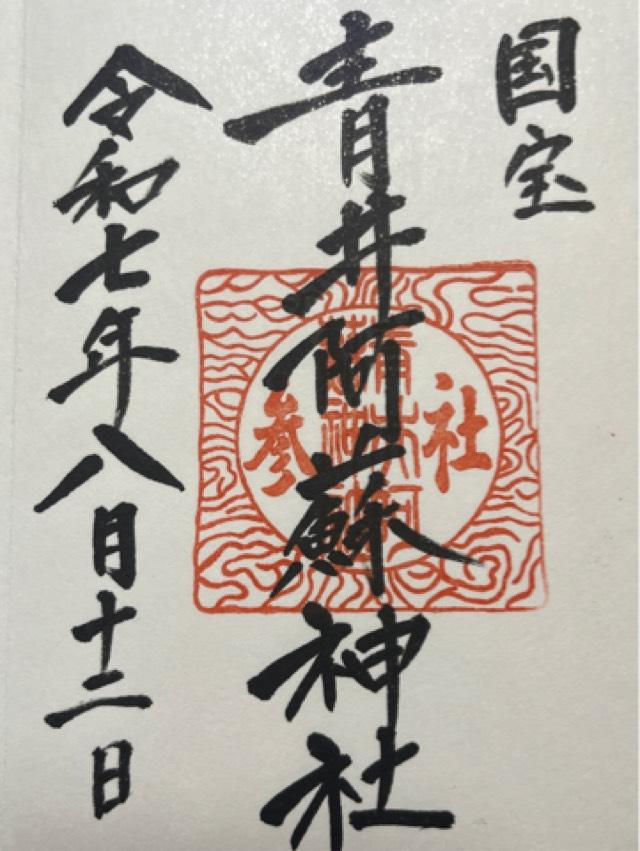 国宝
青井阿蘇神社
社参
令和七年八月十二日